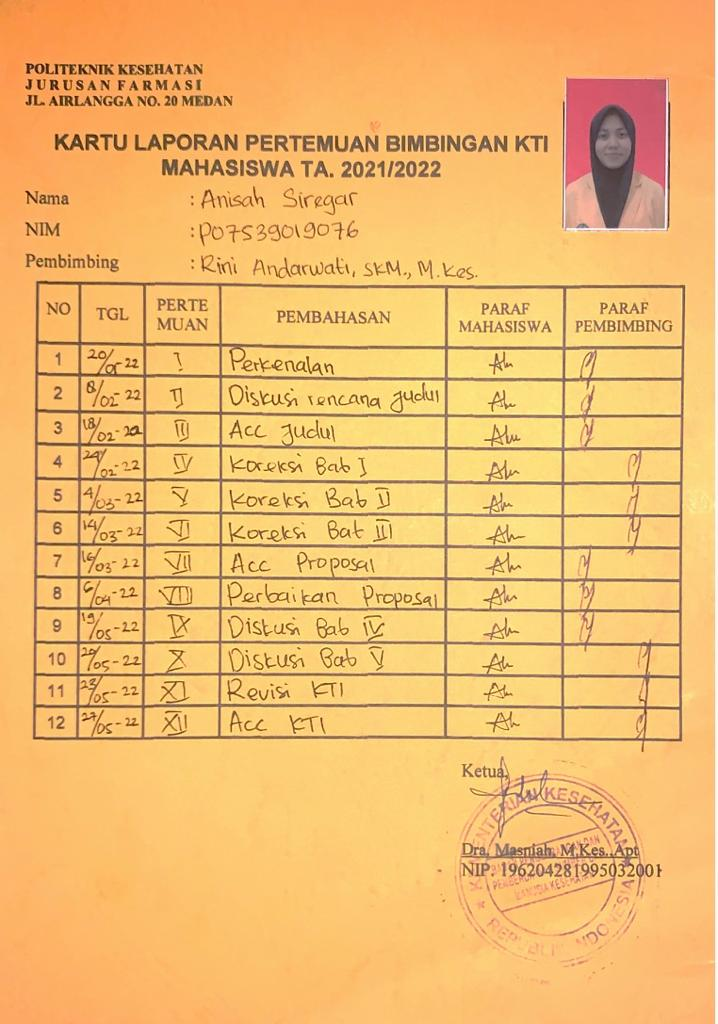 POLITEKNIK KESEHATAN
JURUSAN FARMASI
JL. AIRLANGGA NO. 20 MEDAN
KARTU LAPORAN PERTEMUAN BIMBINGAN KTI
MAHASISWA TA. 2021/2022
Nama : Anisah Siregar
NIM : P07539019076
Pembimbing : Rini Andarwati, SKM., M.Kes.
NO TGL PERTE MUAN PEMBAHASAN PARAF MAHASISWA PARAF PEMBIMBING
1 20/01-22 I Perkenalan
2 8/02-22 II Diskusi rencana judul
3 18/02-22 III Acc Judul
4 24/02-22 IV Koreksi Bab I
5 4/03-22 V Koreksi Bab II
6 14/03-22 VI Koreksi Bab III
7 16/03-22 VII Acc Proposal
8 6/04-22 VIII Perbaikan Proposal
9 19/05-22 IX Diskusi Bab IV
10 20/05-22 X Diskusi Bab V
11 23/05-22 XI Revisi KTI
12 27/05-22 XII Acc KTI
Ketua,
KEMENTERIAN KESEHATAN
Dra. Masniah, M.Kes.,Apt
NIP. 196204281995032001
MANUSIA KESEHATAN
REPUBLIK INDONESIA